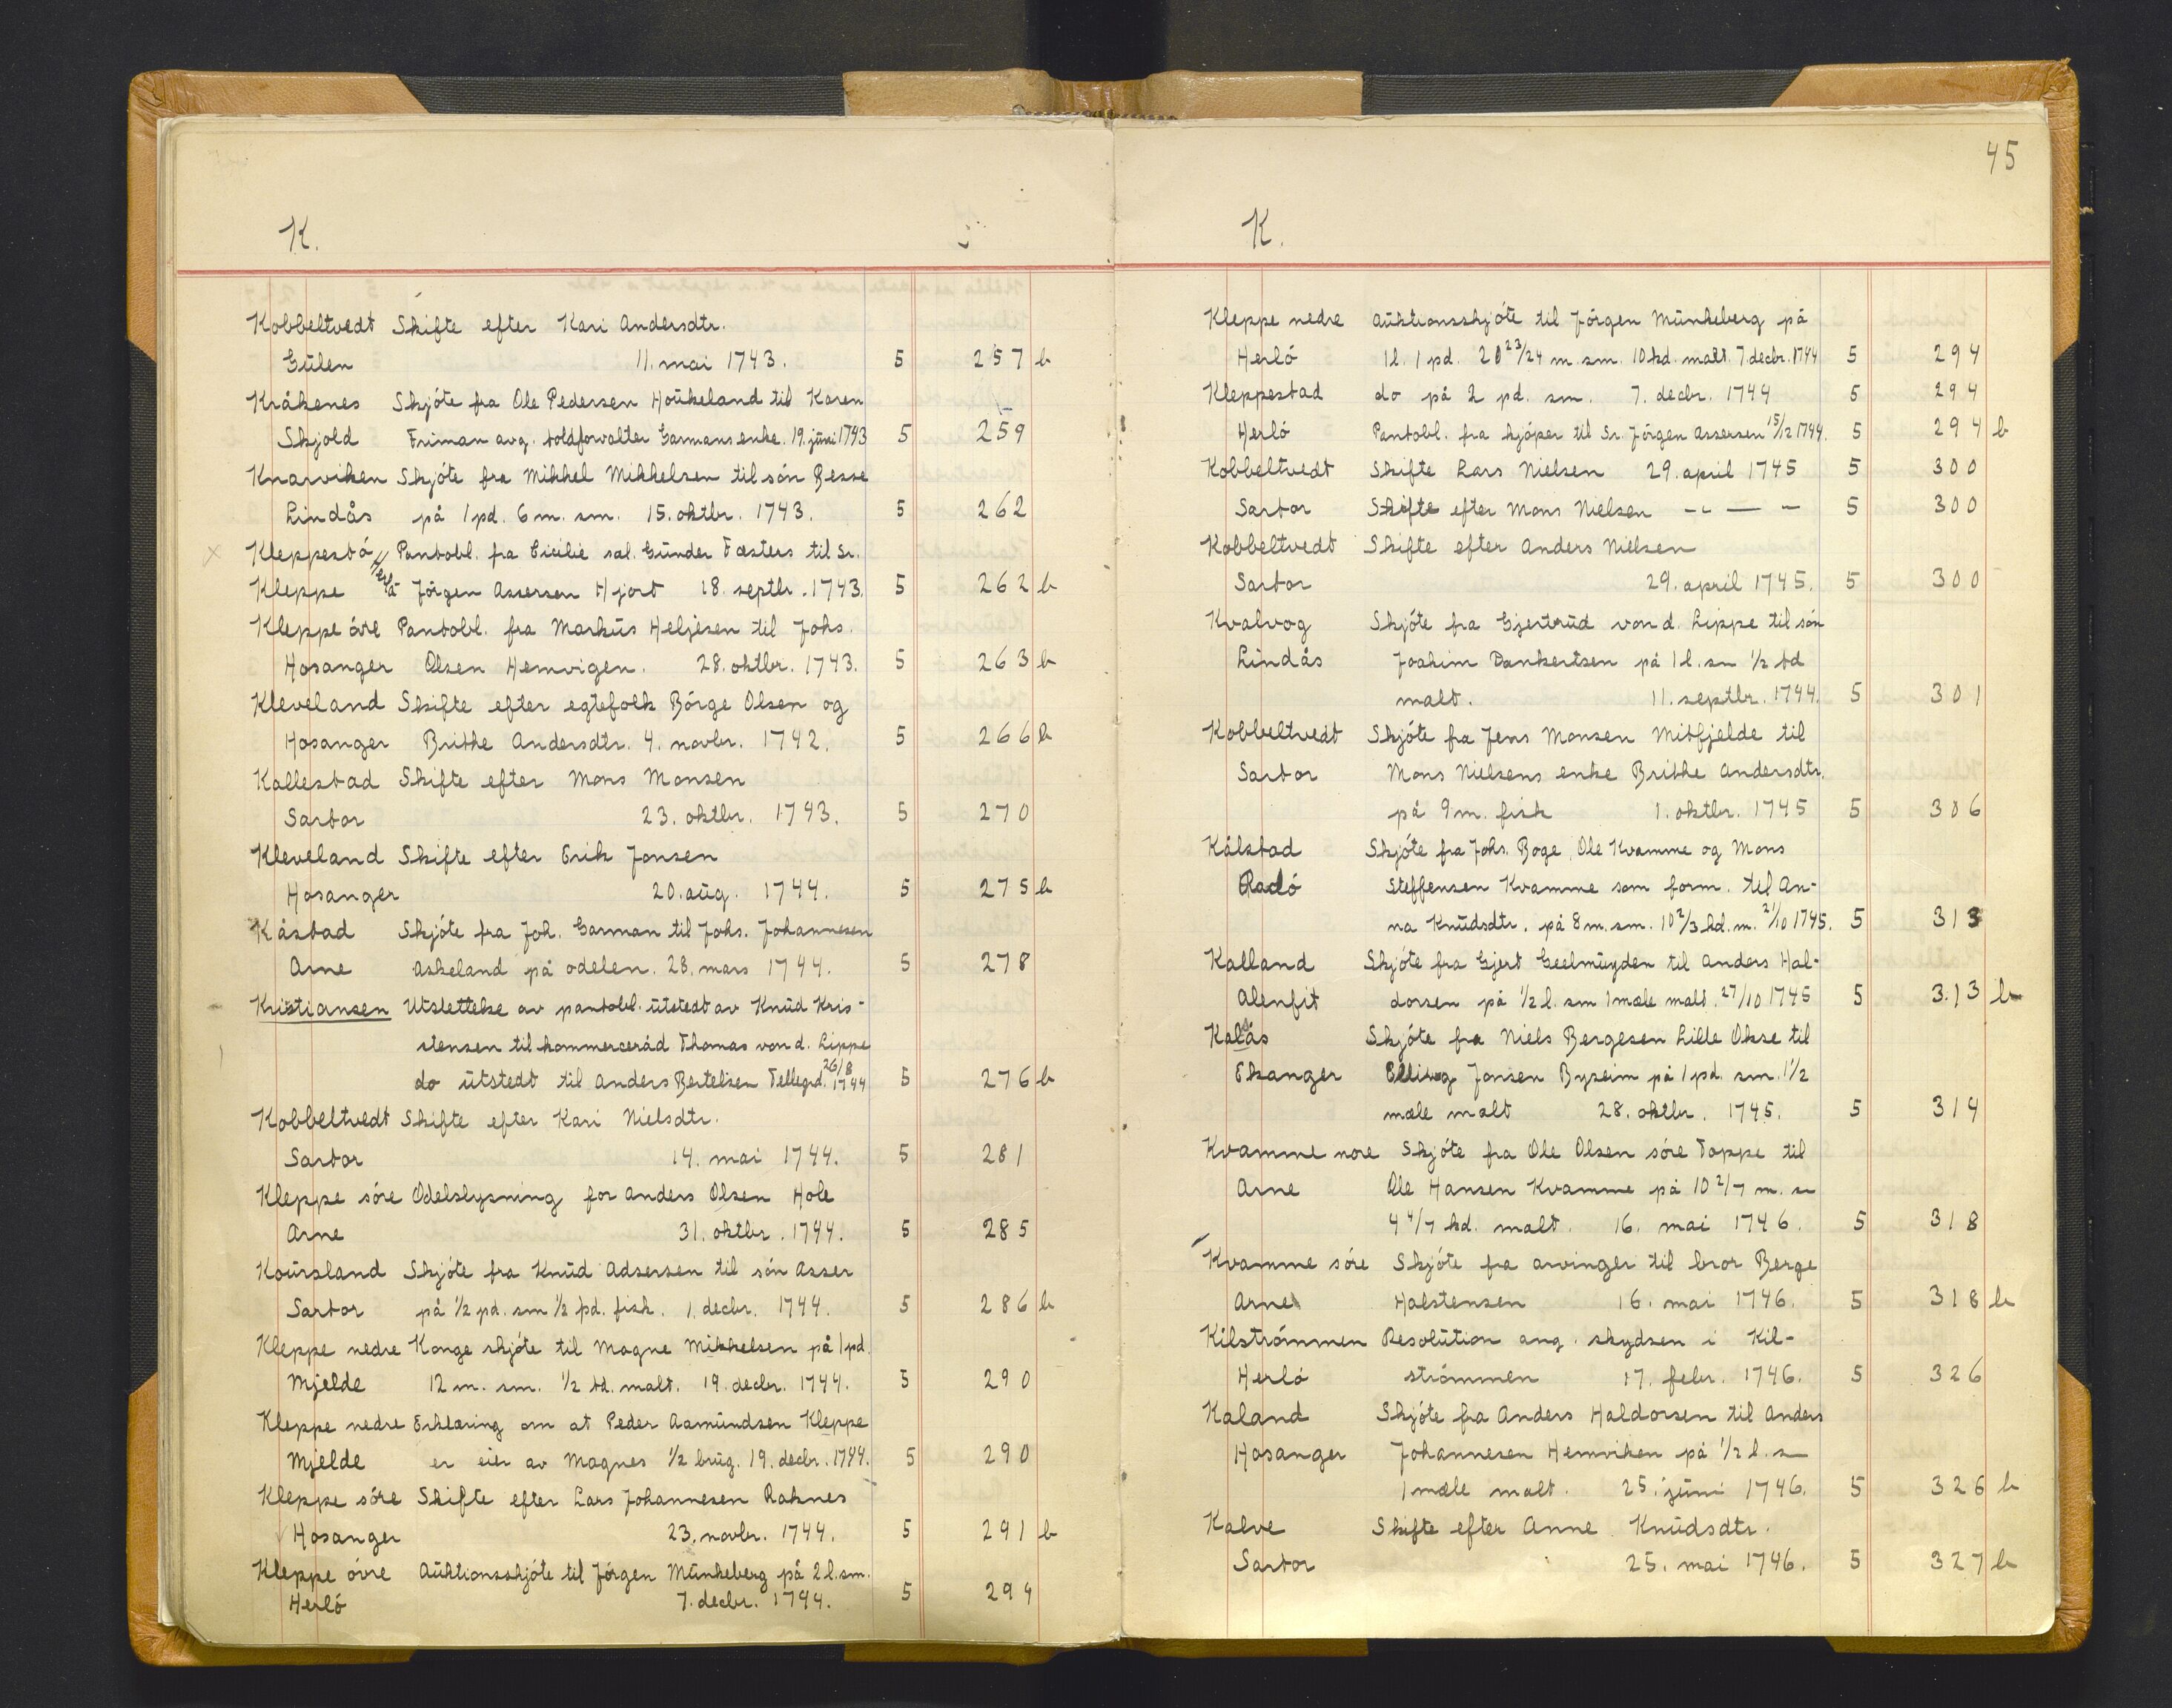 45
K.
Kobbeltvedt Skifte efter Kari Andersdtr.
Gülen 11. mai 1743. 5 257 b
Kråkenes Skjóte fra Ole Pedersen Hoükeland til Karen
Skjold Friman avg. toldforvalter Garmans enke. 19. jüni 1743 5 259
Knarviken Skjóte fra Mikkel Mikkelsen til són Besse
Lindås på 1 pd. 6 m. sm. 15. oktbr. 1743. 5 262
x Kleppestó Pantobl. fra Cicilie sal. Günder Fæsters til Sr.
Kleppe Jörgen Assersen Hjort 18. septbr. 1743. 5 262 b
Kleppe óvre Pantobl. fra Markus Heljesen til Johs.
Hosanger Olsen Hemvigen. 28. oktbr. 1743. 5 263 b
Kleveland Skifte efter egtefolk Börge Olsen og
Hosanger Brithe Andersdtr. 4. novbr. 1742. 5 266 b
Kallestad Skifte efter Mons Monsen
Sartor 23. oktbr. 1743. 5 270
Kleveland Skifte efter Erik Jonsen
Hosanger 20. aüg. 1744. 5 275 b
Kåstad Skjóte fra Joh. Garman til Johs. Johannesen
Arne Askeland på odelen. 28. mars 1744. 5 278
Kristiansen Utslettelse av pantobl. ütstedt av Knüd Kris-
stensen til kommerceråd Thomas von d. Lippe
do ütstedt til Anders Bertelsen Tellegrd. 26/8 1744 5 276 b
Kobbeltvedt Skifte efter Kari Nielsdtr.
Sartor 14. mai 1744. 5 281
Kleppe sóre Odelslysning for Anders Olsen Hole
Arne 31. oktbr. 1744. 5 285
Koürsland Skjóte fra Knüd Adsersen til són Asser
Sartor på 1/2 pd. sm 1/2 pd. fisk. 1. decbr. 1744. 5 286 b
Kleppe nedre Konge skjóte til Magne Mikkelsen på 1 pd.
Mjelde 12 m. sm. 1/2 td. malt. 19. decbr. 1744. 5 290
Kleppe nedre Erklæring om at Peder Aamündsen Kleppe
Mjelde er eier av Magnes 1/2 brüg. 19. decbr. 1744. 5 290
Kleppe sóre Skifte efter Lars Johannesen Raknes
Hosanger 23. novbr. 1744. 5 291 b
Kleppe óvre Aüktionsskjóte til Jörgen Münkeberg på 2 l. sm.
Herló 7. decbr. 1744. 5 294
K.
Kleppe nedre Aüktionsskjóte til Jörgen Münkeberg på
Herló 1 l. 1 pd. 20 23/24 m. sm. 10 kd. malt. 7. decbr. 1744 5 294
Kleppestad do på 2 pd. sm. 7. decbr. 1744 5 294
Herló Pantobl. fra kjóper til Sr. Jörgen Assersen 15/12 1744. 5 294 b
Kobbeltvedt Skifte Lars Nielsen 29. april 1745 5 300
Sartor Skifte efter Mons Nielsen -"- — - 5 300
Kobbeltvedt Skifte efter Anders Nielsen
Sartor 29. april 1745. 5 300
Kvalvog Skjóte fra Gjertrüd von d. Lippe til són
Lindås Joakim Dankertsen på 1 l. sm 1/2 td
malt. 11. septbr. 1744. 5 301
Kobbeltvedt Skjóte fra Jens Monsen Mitfjelde til
Sartor Mons Nielsens enke Brithe Andersdtr.
på 9 m. fisk 1. oktbr. 1745 5 306
Kålstad Skjóte fra Johs. Boge, Ole Kvamme og Mons
Radó Steffensen Kvamme som form. til An-
na Knüdsdtr. på 8 m. sm. 10 2/3 kd. m. 21/10 1745. 5 313
Kalland Skjóte fra Gjert Geelmüyden til Anders Hal-
Alenfit dorsen på 1/2 l. sm 1 mæle malt. 27/10 1745 5 313 b
Kalås Skjóte fra Niels Bergesen Lille Okse til
Ekanger Elling Jonsen Byseim på 1 pd. sm. 1 1/2
mæle malt 28. oktbr. 1745. 5 314
Kvamme nore Skjóte fra Ole Olsen sóre Toppe til
Arne Ole Hansen Kvamme på 10 2/7 m. sm
4 4/7 kd. malt. 16. mai 1746. 5 318
Kvamme sóre Skjóte fra arvinger til bror Berge
Arne Halstensen 16. mai 1746. 5 318 b
Kilströmmen Resolütion ang. skydsen i Kil-
Herló strömmen 17. febr. 1746. 5 326
Kaland Skjóte fra Anders Haldorsen til Anders
Hosanger Johannesen Hemviken på 1/2 l. sm
1 mæle malt. 25. jüni 1746. 5 326 b
Kalve Skifte efter Anne Knüdsdtr.
Sartor 25. mai 1746. 5 327 b